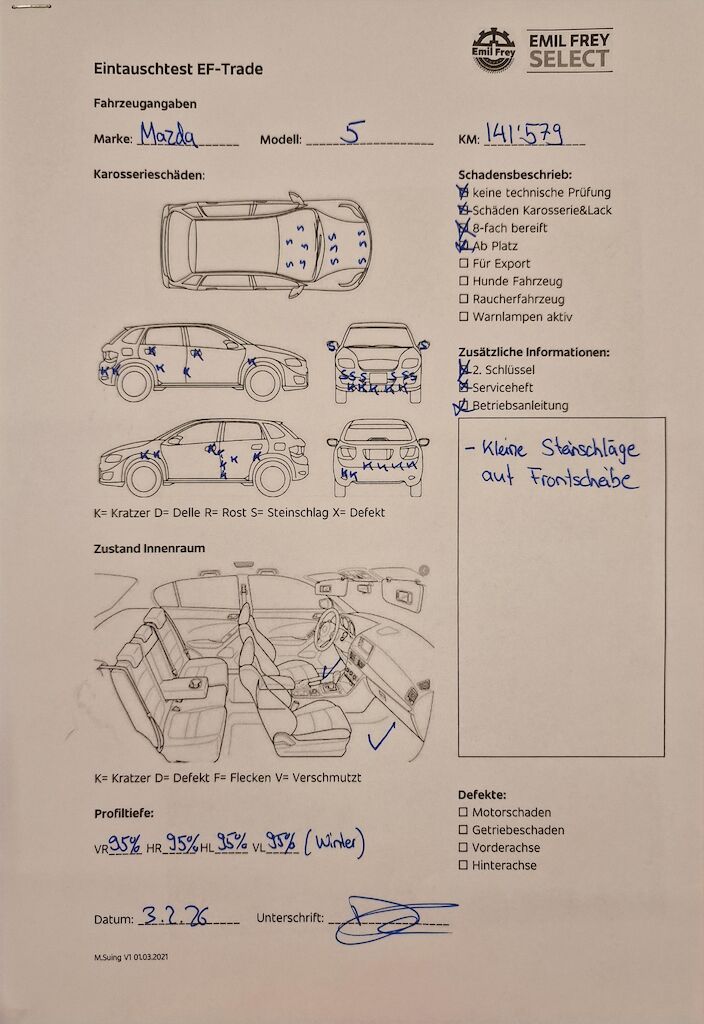 Emil Frey
EMIL FREY
SELECT
Eintauschtest EF-Trade
Fahrzeugangaben
Marke: Mazda Modell: 5 KM: 141'579
Karosserieschäden:
S S S S S S S S S S S S S S
K K K K K K K K
S S S S S S S
K K K K K
K K K K K K K K
K K K K K K
K= Kratzer D= Delle R= Rost S= Steinschlag X= Defekt
Zustand Innenraum
K= Kratzer D= Defekt F= Flecken V= Verschmutzt
Profiltiefe:
VR 95% HR 95% HL 95% VL 95% (Winter)
Datum: 3.2.26 Unterschrift:
M.Suing V1 01.03.2021
Schadensbeschrieb:
☒ keine technische Prüfung
☒ Schäden Karosserie&Lack
☒ 8-fach bereift
☒ Ab Platz
☐ Für Export
☐ Hunde Fahrzeug
☐ Raucherfahrzeug
☐ Warnlampen aktiv
Zusätzliche Informationen:
☒ 2. Schlüssel
☒ Serviceheft
☒ Betriebsanleitung
- Kleine Steinschläge
auf Frontscheibe
Defekte:
☐ Motorschaden
☐ Getriebeschaden
☐ Vorderachse
☐ Hinterachse